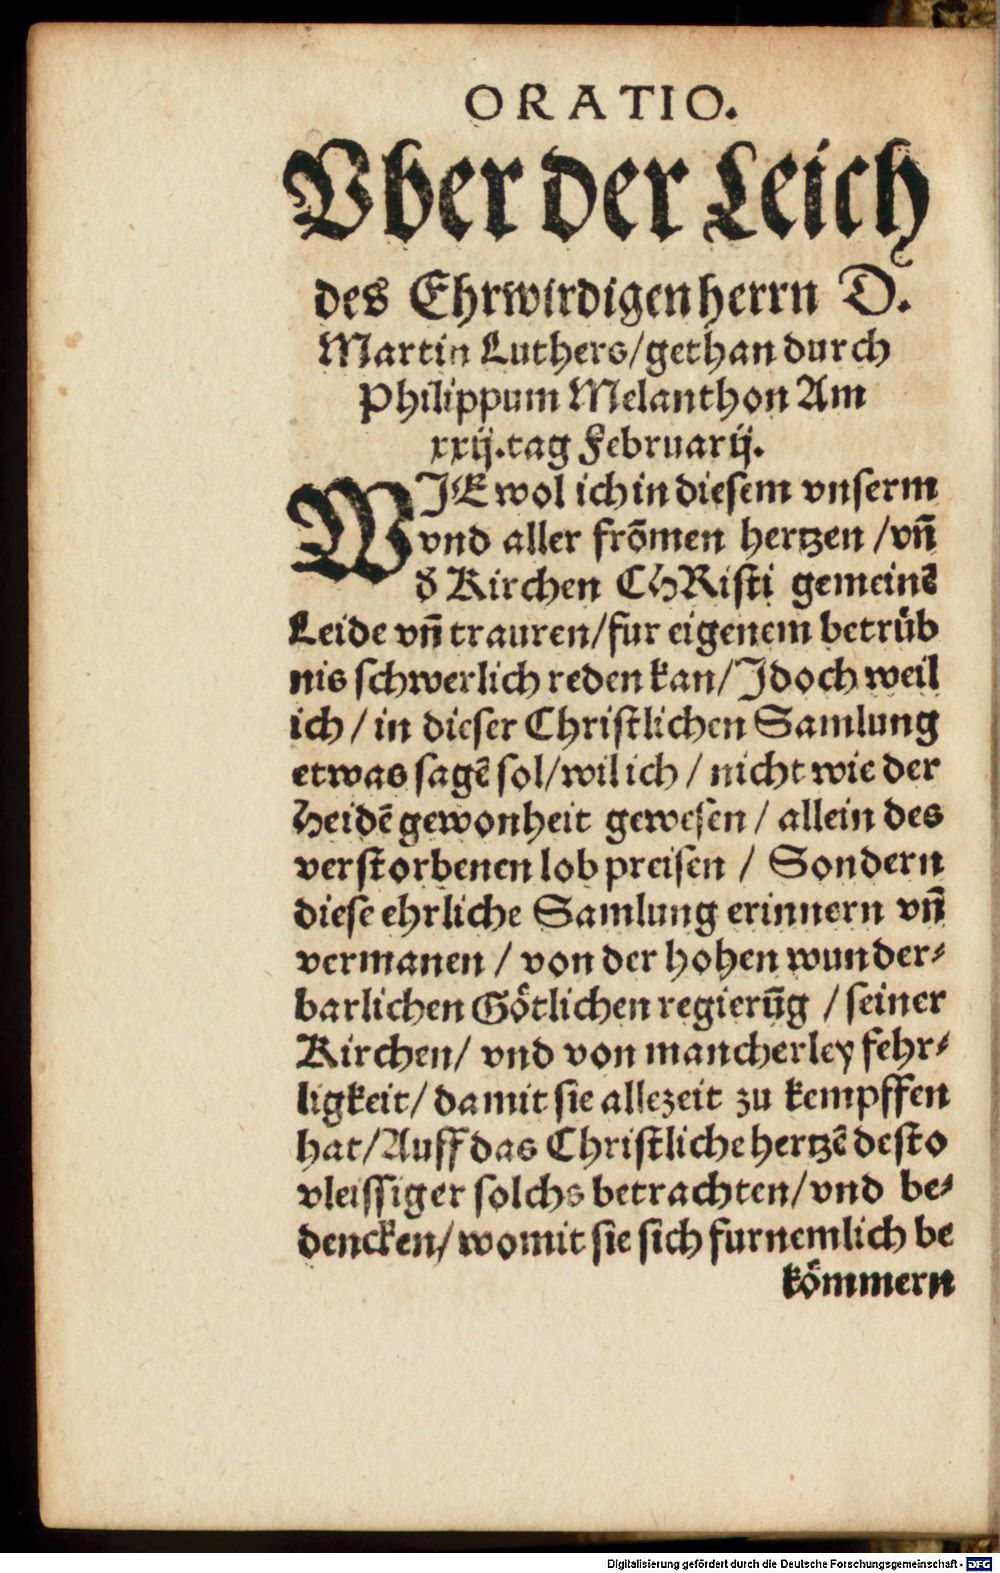 ORATIO.
Vber der Leich
des Ehrwirdigen herrn D.
Martin Luthers/gethan durch
Philippum Melanthon Am
xxij.tag Februarij.
WJE wol ich in diesem vnserm
vnd aller frõmen hertzen /vñ
d̕ Kirchen CHRisti gemeinẽ
Leide vñ trauren/fur eigenem betrüb
nis schwerlich reden kan/Jdoch weil
ich / in dieser Christlichen Samlung
etwas sagẽ sol/wil ich / nicht wie der
Heidẽ gewonheit gewesen / allein des
verstorbenen lob preisen / Sondern
diese ehrliche Samlung erinnern vñ
vermanen / von der hohen wunder-
barlichen Götlichen regierũg / seiner
Kirchen/ vnd von mancherley fehr-
ligkeit/ damit sie allezeit zu kempffen
hat/Auff das Christliche hertzẽ desto
vleissiger solchs betrachten/vnd be-
dencken/womit sie sich furnemlich be
kömmern
Digitalisierung gefördert durch die Deutsche Forschungsgemeinschaft - DFG